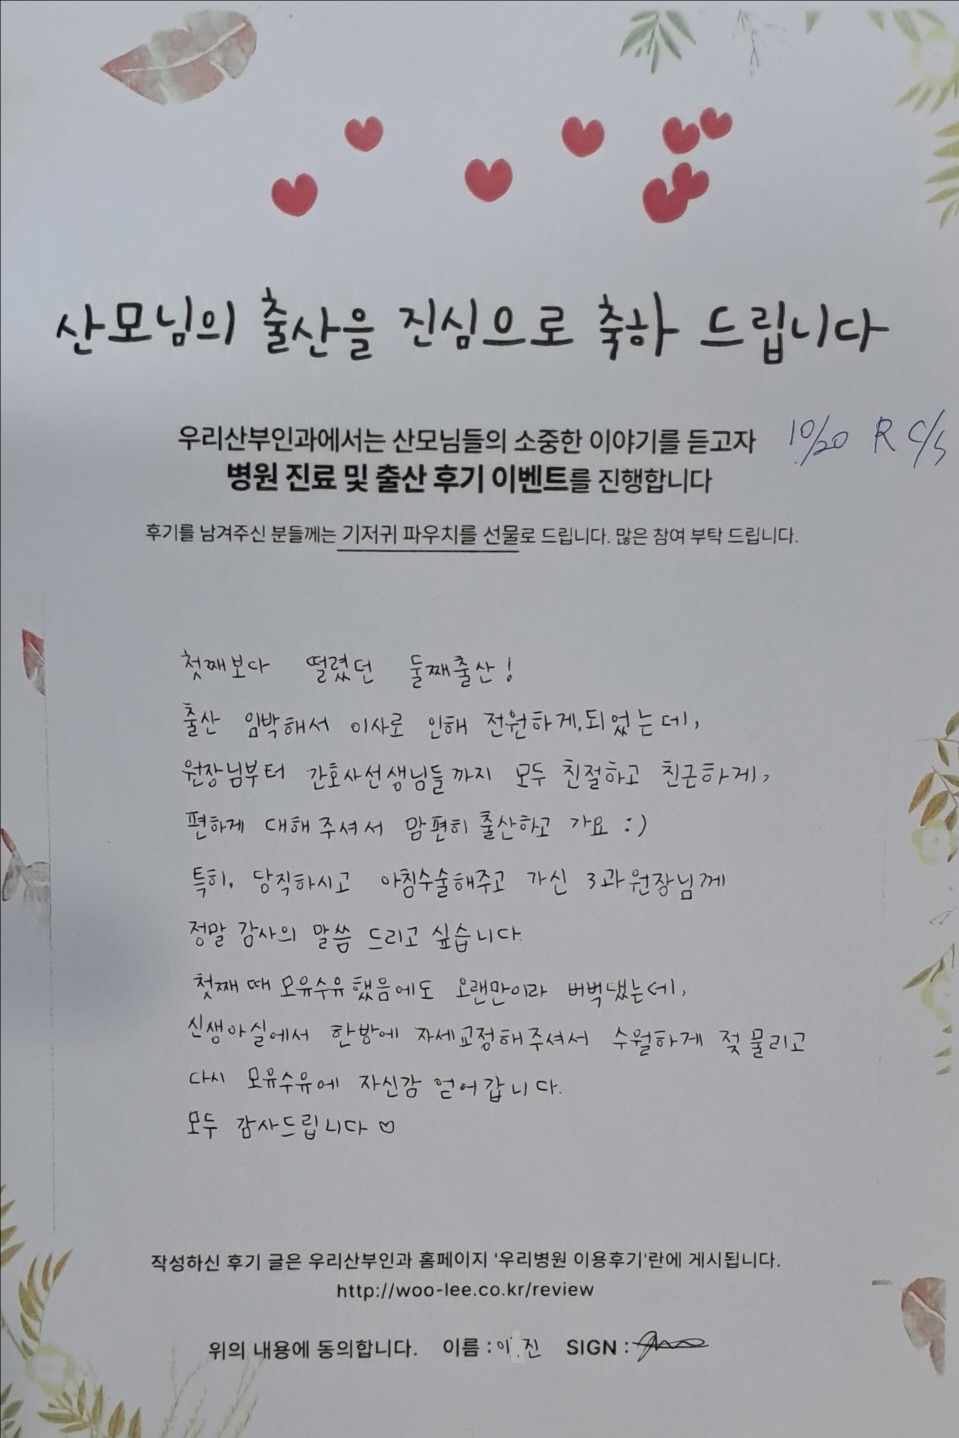 산모님의 출산을 진심으로 축하 드립니다
우리산부인과에서는 산모님들의 소중한 이야기를 듣고자
10/20 R C/S
병원 진료 및 출산 후기 이벤트를 진행합니다
후기를 남겨주신 분들께는 기저귀 파우치를 선물로 드립니다. 많은 참여 부탁 드립니다.
첫째보다 떨렸던 둘째출산!
출산 임박해서 이사로 인해 전원하게 되었는데,
원장님부터 간호사선생님들까지 모두 친절하고 친근하게,
편하게 대해주셔서 맘편히 출산하고 가요 :)
특히, 당직하시고 아침수술해주고 가신 3과원장님께
정말 감사의 말씀 드리고 싶습니다.
첫째 때 모유수유 했음에도 오랜만이라 버벅댔는데,
신생아실에서 한방에 자세교정해주셔서 수월하게 젖 물리고
다시 모유수유에 자신감 얻어갑니다.
모두 감사드립니다 ♡
작성하신 후기 글은 우리산부인과 홈페이지 '우리병원 이용후기'란에 게시됩니다.
http://woo-lee.co.kr/review
위의 내용에 동의합니다. 이름 : 이 진 SIGN :